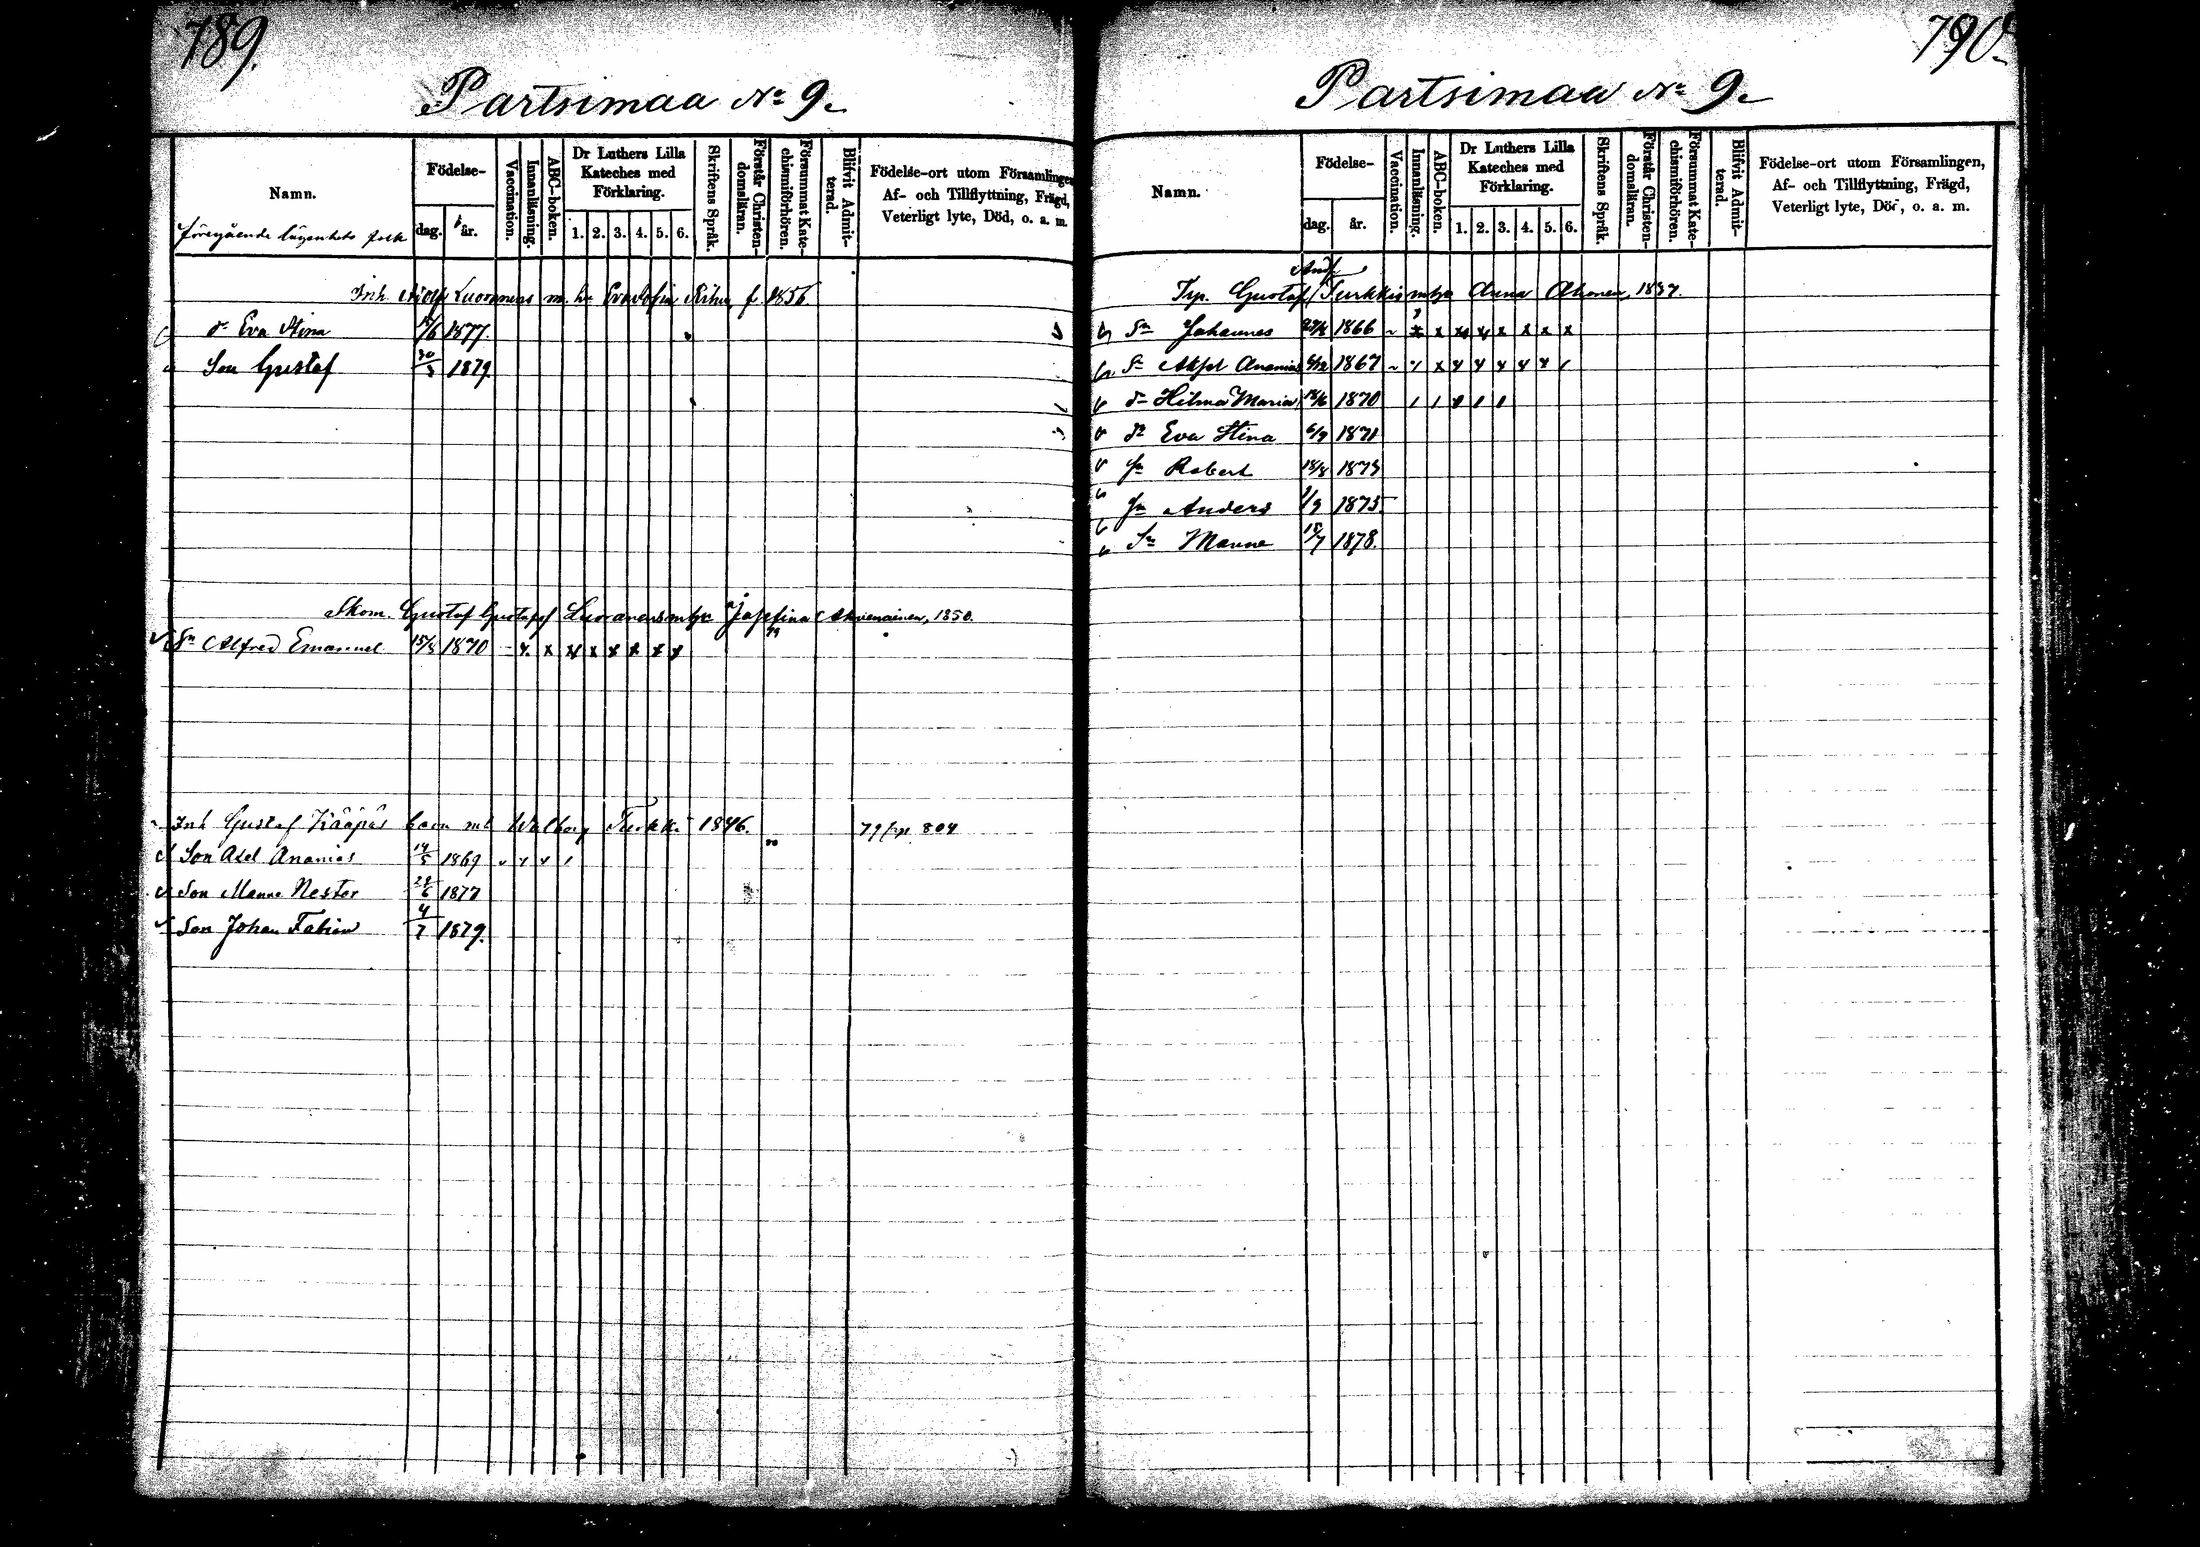 789.
Partsimaa No 9.
Namn.
Födelse-
dag. år.
Vaccination.
Innanläsning.
ABC-boken.
Dr Luthers Lilla Kateches med Förklaring.
1. 2. 3. 4. 5. 6.
Skriftens Språk.
Förstår Christen-domsläran.
Försummat Kate-chismiförhören.
Blifvit Admit-terad.
Födelse-ort utom Församlingen,
Af- och Tillflyttning, Frägd,
Veterligt lyte, Död, o. a. m.
föregående lägenhets folk
Inh. Adolf Luoranens m. h. Eva Sofia f. 1856
dr Eva Stina 1877.
Son Gustaf 1879
Skom. Gustaf Gustafsf Luoranens m hu Josefina 1850.
Sn Alfred Emanuel 15/8 1870 - x x x x x x x x
Inh Gustaf Kääpäs barn mh Walborg Turkki 1846. 79 p. 804
Son Axel Ananias 14/5 1869
Son Manne Nestor 28/6 1877
Son Johan Fabian 4/7 1879.
790.
Partsimaa No 9.
Namn.
Födelse-
dag. år.
Vaccination.
Innanläsning.
ABC-boken.
Dr Luthers Lilla Kateches med Förklaring.
1. 2. 3. 4. 5. 6.
Skriftens Språk.
Förstår Christen-domsläran.
Försummat Kate-chismiförhören.
Blifvit Admit-terad.
Födelse-ort utom Församlingen,
Af- och Tillflyttning, Frägd,
Veterligt lyte, Död, o. a. m.
Andf
Trp. Gustaf Turkkis m hu Anna Ahonen, 1837.
Sn Johannes 1866 x x x x x x x x
Sn Axel Ananias 6/12 1867
dr Hilma Maria 1870
dr Eva Stina 6/9 1871
Sn Robert 18/8 1873
Sn Anders 1/9 1875
Sn Manne 15/7 1878.